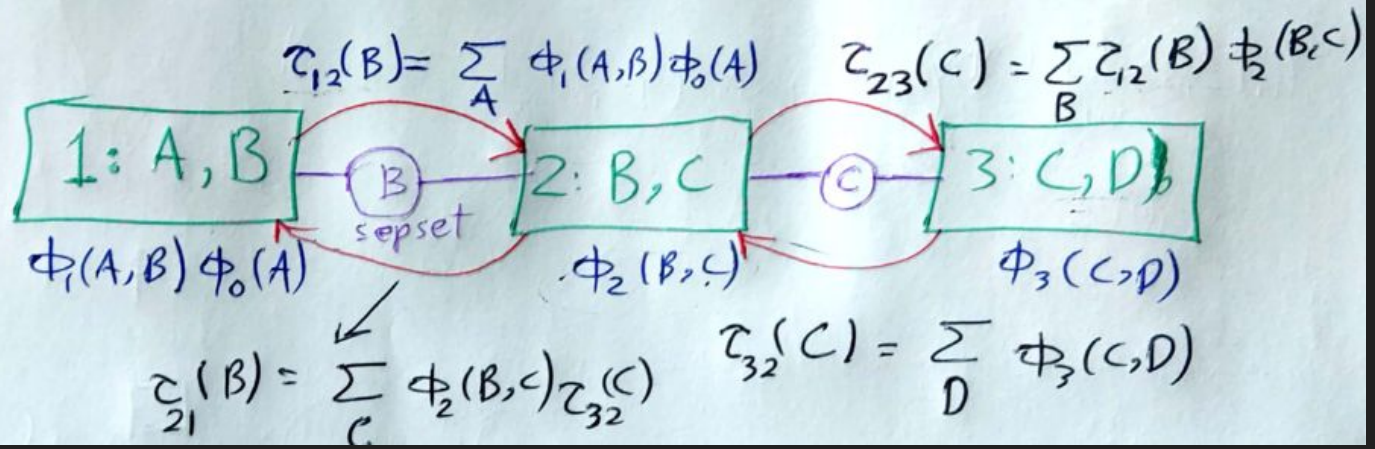 τ₁₂(B)= Σ_A ϕ₁(A,B)ϕ₀(A)
τ₂₃(C) = Σ_B τ₁₂(B) ϕ₂(B,C)
1: A, B
B
sepset
2: B, C
C
3: C, D
ϕ₁(A,B) ϕ₀(A)
ϕ₂(B,C)
ϕ₃(C,D)
τ₂₁(B) = Σ_C ϕ₂(B,C)τ₃₂(C)
τ₃₂(C) = Σ_D ϕ₃(C,D)